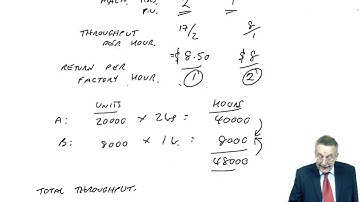 2 1
P.U.
THROUGHPUT 17/2 8/1
PER HOUR.
RETURN PER $8.50 $8
FACTORY HOUR. 1 2
UNITS HOURS
A: 20000 × 2hrs = 40000
B: 8000 × 1h. = 8000
48000
TOTAL THROUGHPUT.